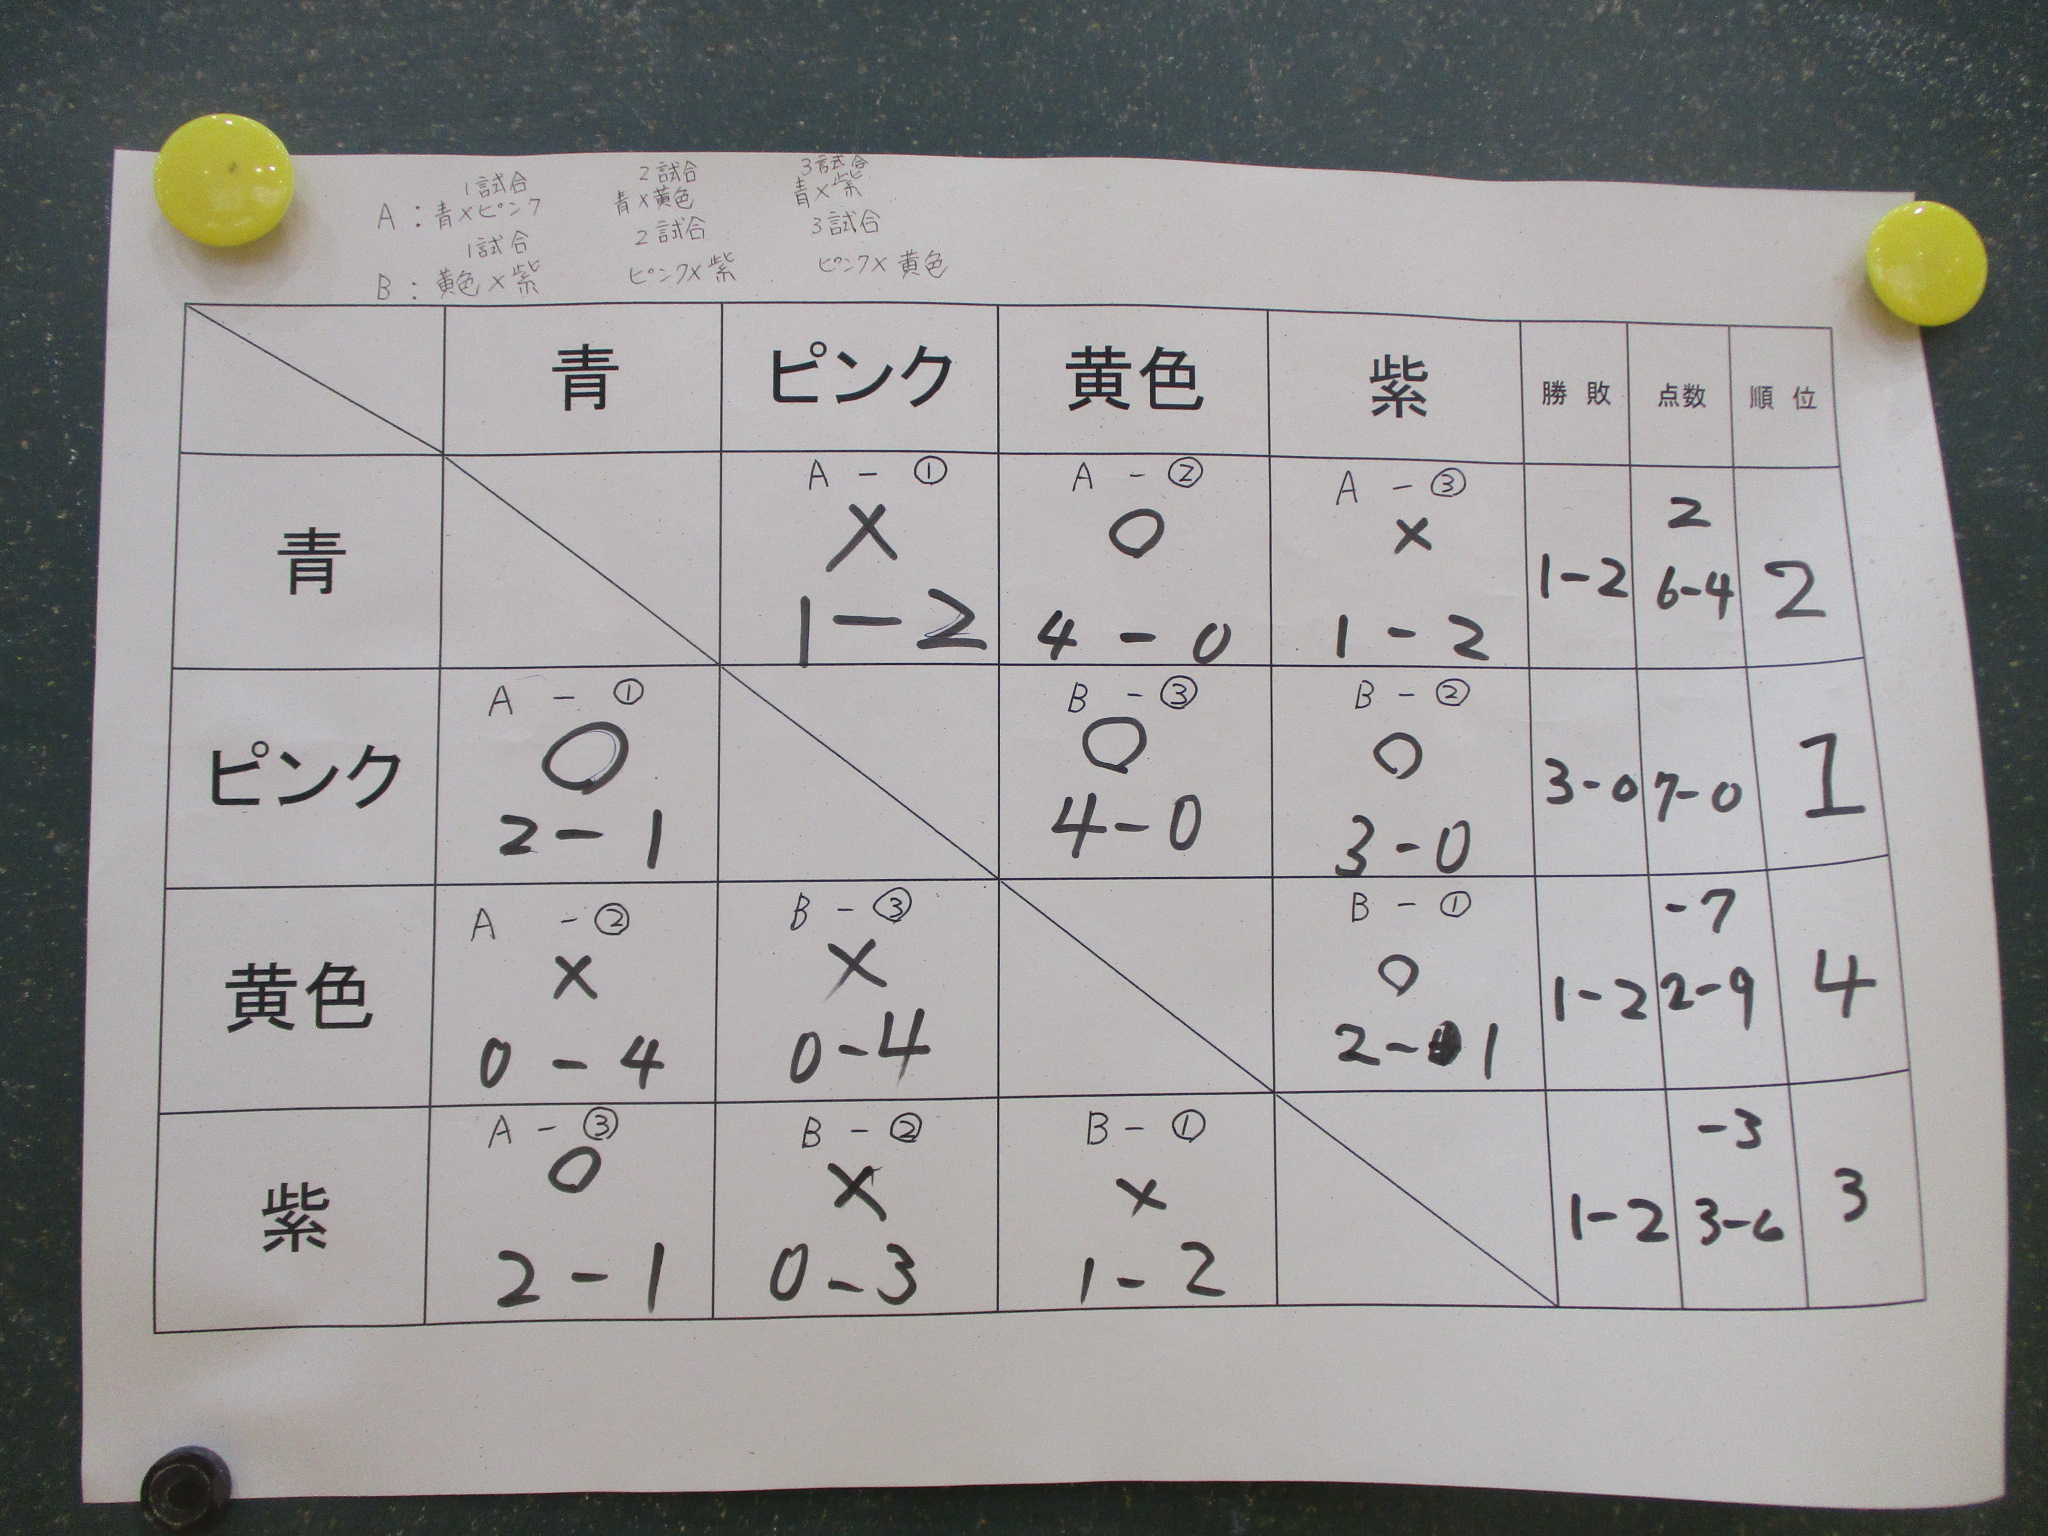 1試合 2試合 3試合
A:青×ピンク 青×黄色 青×紫
1試合 2試合 3試合
B:黄色×紫 ピンク×紫 ピンク×黄色
青 ピンク 黄色 紫 勝敗 点数 順位
A-① A-② A-③
× ○ × 2
青 1-2 4-0 1-2 1-2 6-4 2
A-① B-③ B-②
○ ○ ○
ピンク 2-1 4-0 3-0 3-0 7-0 1
A-② B-③ B-①
× × ○ -7
黄色 0-4 0-4 2-1 1-2 2-9 4
A-③ B-② B-①
○ × × -3
紫 2-1 0-3 1-2 1-2 3-6 3